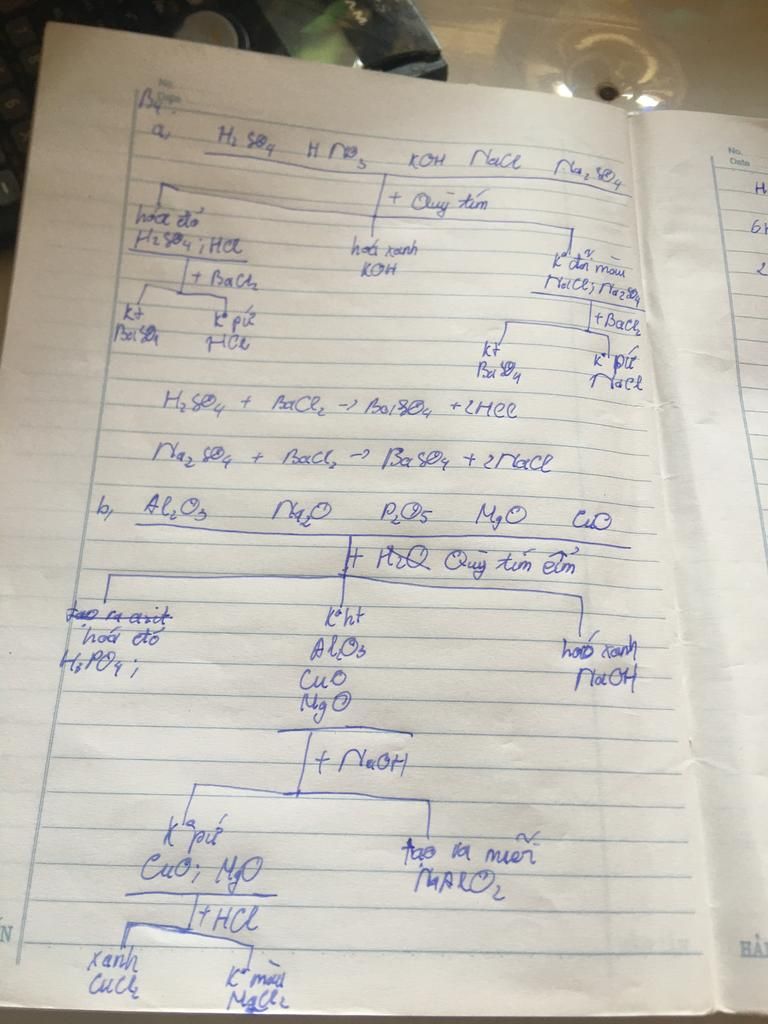 No.
Date
B4
a, H2SO4 HNO3 KOH NaCl Na2SO4
+ Quỳ tím
hoá đỏ
H2SO4; HCl
hoá xanh
KOH
K° đổi màu
NaCl; Na2SO4
+ BaCl2
+ BaCl2
Kt
BaSO4
K° pứ
HCl
Kt
BaSO4
K° pứ
NaCl
H2SO4 + BaCl2 → BaSO4 + 2HCl
Na2SO4 + BaCl2 → BaSO4 + 2NaCl
b, Al2O3 Na2O P2O5 MgO CuO
+ H2O Quỳ tím ẩm
tạo ra axit
hoá đỏ
H3PO4;
K° ht
Al2O3
CuO
MgO
hoá xanh
NaOH
+ NaOH
K° pứ
CuO; MgO
tạo ra muối
NaAlO2
+ HCl
xanh
CuCl2
K° màu
MgCl2
No.
Date
H
6H
2
HẢI